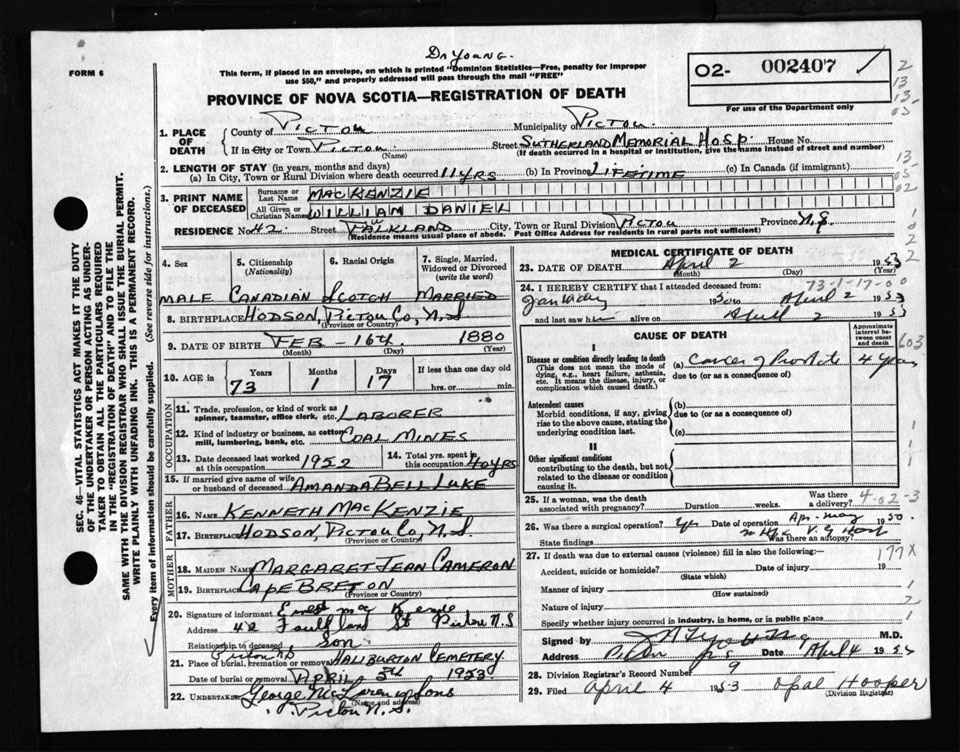 Dr Young.
FORM 6
This form, if placed in an envelope, on which is printed "Dominion Statistics—Free, penalty for improper
use $50," and properly addressed will pass through the mail "FREE"
O2- 002407
For use of the Department only
2
13
13-
03
PROVINCE OF NOVA SCOTIA—REGISTRATION OF DEATH
1. PLACE OF DEATH
County of Pictou Municipality of Pictou.
If in City or Town Pictou (Name) Street Sutherland Memorial Hosp. House No.
(If death occurred in a hospital or institution, give the name instead of street and number)
2. LENGTH OF STAY (in years, months and days)
(a) In City, Town or Rural Division where death occurred 11 yrs (b) In Province Lifetime (c) In Canada (if immigrant)
13-
05
02
3. PRINT NAME OF DECEASED
Surname or Last Name MacKENZIE
All Given or Christian Names WILLIAM DANIEL
RESIDENCE No. 42. Street Falkland City, Town or Rural Division Pictou Province N.S.
(Residence means usual place of abode. Post Office Address for residents in rural parts not sufficient)
4. Sex
5. Citizenship (Nationality)
6. Racial Origin
7. Single, Married, Widowed or Divorced (write the word)
Male Canadian Scotch Married
8. BIRTHPLACE Hodson, Pictou Co, N.S
(Province or Country)
9. DATE OF BIRTH FEB - 16th. 1880
(Month) (Day) (Year)
10. AGE in Years Months Days If less than one day
73 1 17 hrs. or min.
OCCUPATION
11. Trade, profession, or kind of work as spinner, teamster, office clerk, etc. Laborer
12. Kind of industry or business, as cotton mill, lumbering, bank, etc. Coal Mines
13. Date deceased last worked at this occupation 1952
14. Total yrs. spent in this occupation 40 yrs
15. If married give name of wife or husband of deceased Amanda Bell Luke
FATHER
16. Name Kenneth MacKenzie
17. Birthplace Hodson, Pictou Co, N.S.
(Province or Country)
MOTHER
18. Maiden Name Margaret Jean Cameron
19. Birthplace Cape Breton
(Province or Country)
20. Signature of informant Ernest Mac Kenzie
Address 42 Faulkland St Pictou N.S
Relationship to deceased Son
Pictou N S
21. Place of burial, cremation or removal Haliburton Cemetery
Date of burial or removal April 5th 1953
22. Undertaker George McLaren & Sons
(Name and address)
Pictou N.S.
MEDICAL CERTIFICATE OF DEATH
23. DATE OF DEATH April 2 1953
(Month) (Day) (Year)
73-1-17-00
24. I HEREBY CERTIFY that I attended deceased from:
January 1950 to April 2 1953
and last saw him alive on April 2 1953
CAUSE OF DEATH
Approximate interval between onset and death
603
I
Disease or condition directly leading to death
(This does not mean the mode of dying, e.g., heart failure, asthenia, etc. It means the disease, injury, or complication which caused death.)
(a) Cancer of Prostate 4 years
due to (or as a consequence of)
Antecedent causes
Morbid conditions, if any, giving rise to the above cause, stating the underlying condition last.
(b)
due to (or as a consequence of)
(c)
II
Other significant conditions
contributing to the death, but not related to the disease or condition causing it.
25. If a woman, was the death associated with pregnancy? Duration weeks. Was there a delivery?
4-02-3
26. Was there a surgical operation? Yes Date of operation Apr. May 1950
State findings Was there an autopsy?
27. If death was due to external causes (violence) fill in also the following:—
177X
Accident, suicide or homicide? Date of injury 19
(State which)
Manner of injury
(How sustained)
Nature of injury
Specify whether injury occurred in industry, in home, or in public place
Signed by M.D.
Address Pictou N S Date April 4 1953
28. Division Registrar's Record Number 9
29. Filed April 4 1953 Opal Hooper
(Division Registrar)
SEC. 46—VITAL STATISTICS ACT MAKES IT THE DUTY
OF THE UNDERTAKER OR PERSON ACTING AS UNDER-
TAKER TO OBTAIN ALL THE PARTICULARS REQUIRED
IN THE "REGISTRATION OF DEATH" AND TO FILE THE
SAME WITH THE DIVISION REGISTRAR WHO SHALL ISSUE THE BURIAL PERMIT.
WRITE PLAINLY WITH UNFADING INK. THIS IS A PERMANENT RECORD.
Every item of information should be carefully supplied. (See reverse side for instructions.)